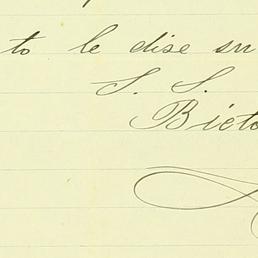 to le dise su
S. S.
Bicto